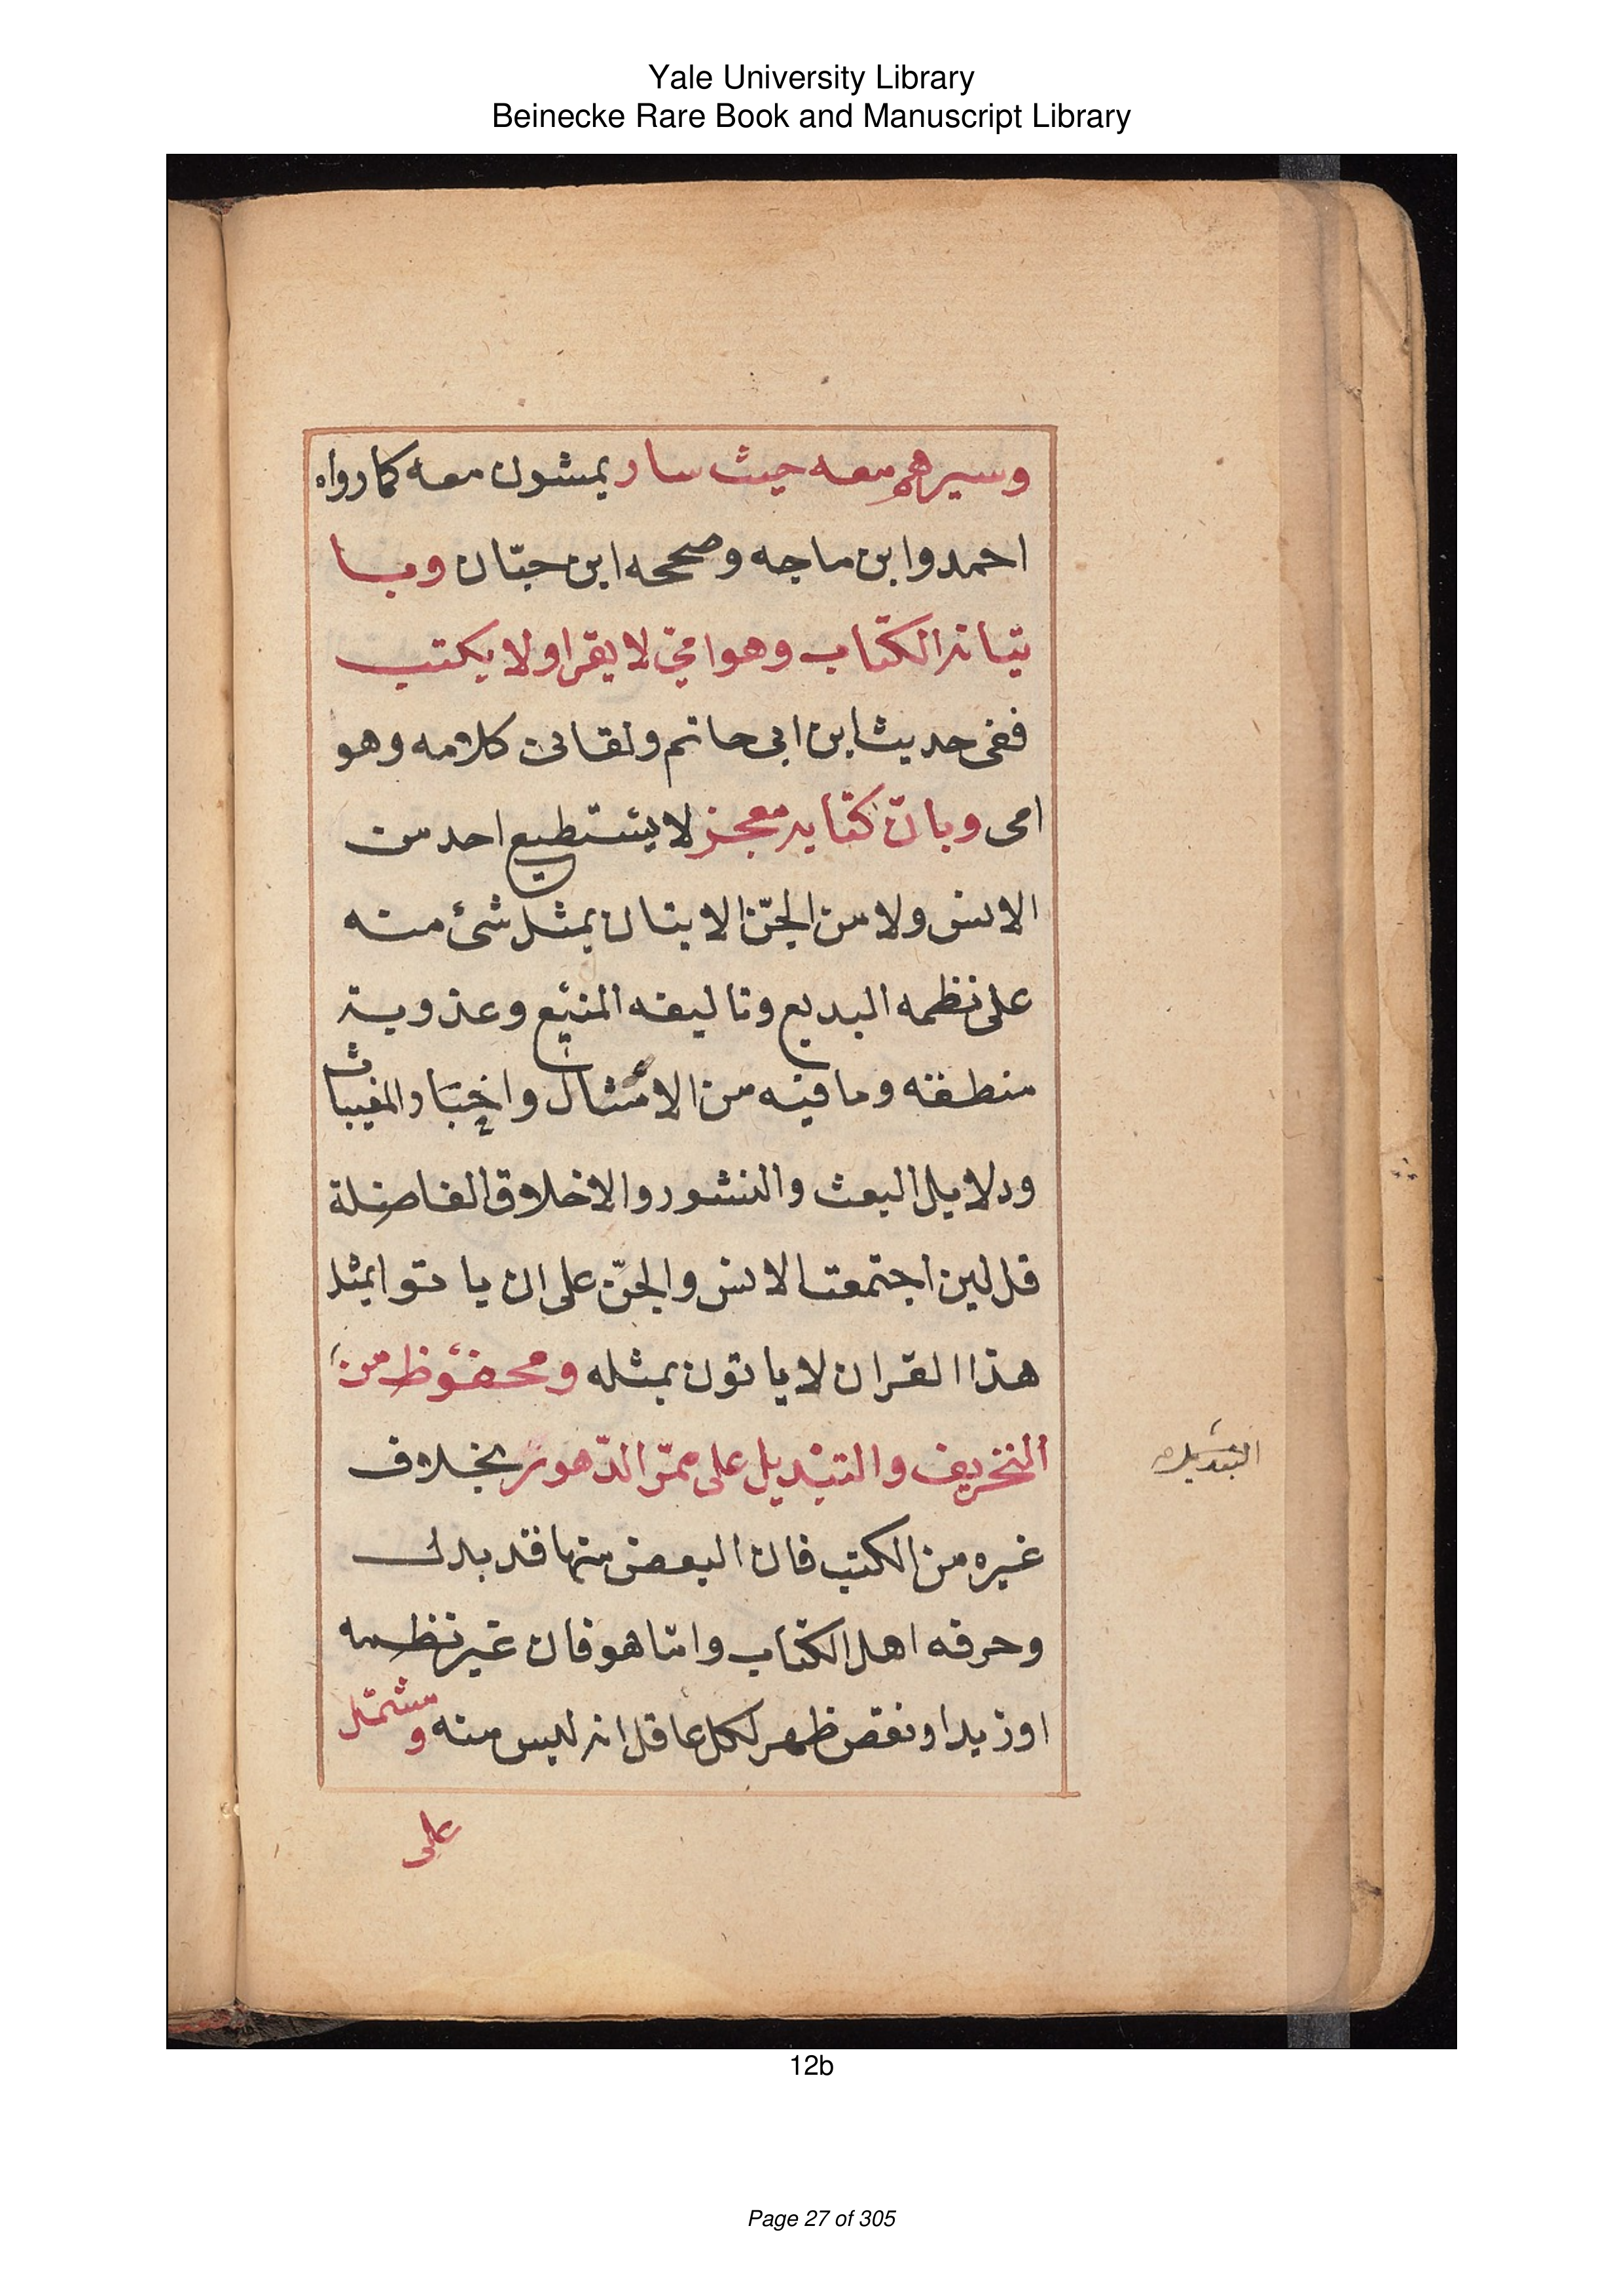 Yale University Library
Beinecke Rare Book and Manuscript Library
وسيرهم معه حيث سار يمشون معه كما رواه
احمد وابن ماجه وصححه ابن حبّان وبا
تيانه الكتاب وهو امّي لا يقرا ولا يكتب
ففى حديث ابن ابى حاتم ولقانى كلامه وهو
امى وبانّ كتابه معجز لا يستطيع احد من
الانس ولا من الجنّ الاتيان بمثل شئ منه
على نظمه البديع وتاليفه المنيع وعذوبة
منطقه وما فيه من الامثال واخبار المغيبات
ودلايل البعث والنشور والاخلاق الفاضلة
قل لين اجتمعت الانس والجنّ على ان ياتوا بمثل
هذا القران لا ياتون بمثله ومحفوظ من
التحريف والتبديل على ممرّ الدّهور بخلاف
التبديل
غيره من الكتب فان البعض منها قد بدل
وحرفه اهل الكتاب وامّا هو فان غير نظمه
او زيد او نقص ظهر لكل عاقل انه ليس منه ومشتمل
على
12b
Page 27 of 305